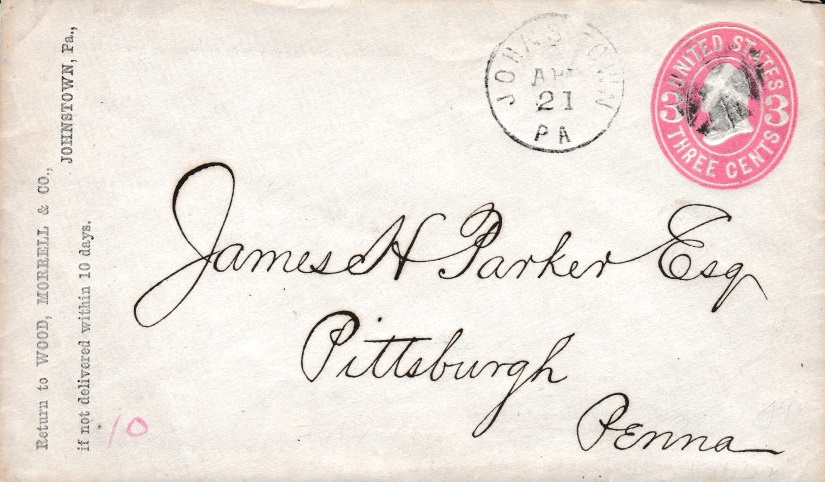 Return to WOOD, MORRELL & CO.,
JOHNSTOWN, Pa.,
if not delivered within 10 days.
10
JOHNSTOWN
APR
21
PA
UNITED STATES
3 3
THREE CENTS
James H Parker Esq
Pittsburgh
Penna